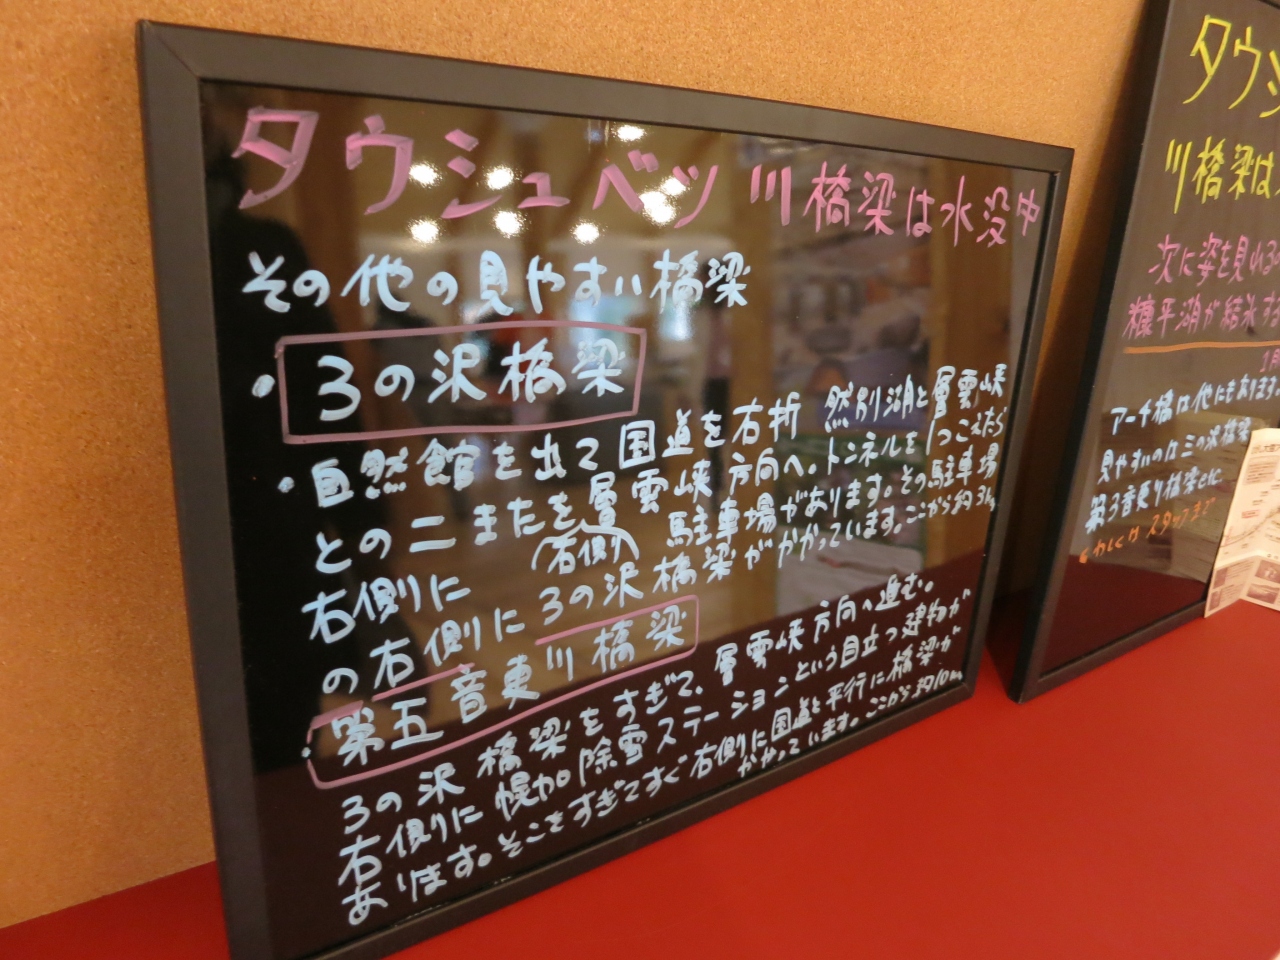 タウシュベツ川橋梁は水没中
その他の見やすい橋梁
・3の沢橋梁
・自然館を出て国道を右折 然別湖と層雲峡
との二またを層雲峡方向へ。トンネルを1つこえたら
右側に(右側)駐車場があります。その駐車場
の右側に3の沢橋梁がかかっています。ここから約3km
・第五音更川橋梁
3の沢橋梁をすぎて、層雲峡方向へ進む。
右側に幌加除雪ステーションという目立つ建物が
あります。そこをすぎてすぐ右側に国道と平行に橋梁が
かかっています。ここから約10km
タウシ
川橋梁は
次に姿を見れるの
糠平湖が結氷す
1月
アーチ橋は他にもあります
見やすいのは三の沢橋梁
第3音更川橋梁とに
くわしくはスタッフまで